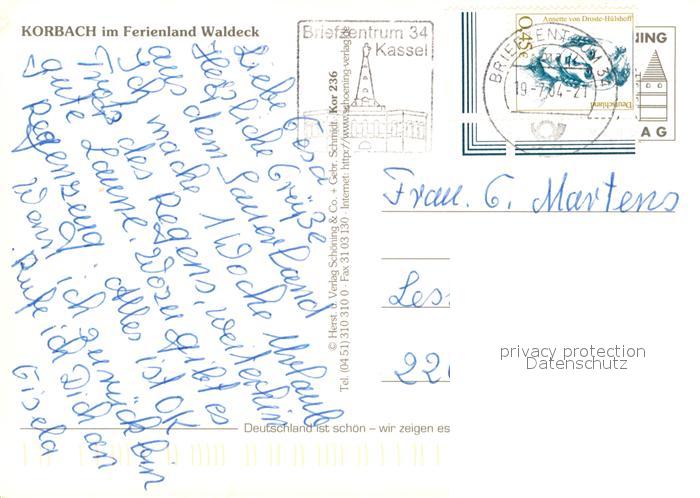 KORBACH im Ferienland Waldeck
Liebe Gesa
Herzliche Grüße
aus dem Sauerland
Ich mache 1 Woche Urlaub
Trotz des Regens, weiterhin
gute Laune. Wozu gibt es
Regenzeug. Alles ist OK
Wann ich zurück bin
Rufe ich Dich an
Gisela
© Herst. u. Verlag Schöning & Co. + Gebr. Schmidt · Kor 236
Tel. (04 51) 310 310 0 · Fax 31 03 130 · Internet: http://www.schoening-verlag.de
Briefzentrum 34
Kassel
Annette von Droste-Hülshoff
0,45€
Deutschland
BRIEFZENTRUM 34
19-7.04-21
NING
AG
Frau. G. Martens
Les
22
privacy protection
Datenschutz
Deutschland ist schön – wir zeigen es